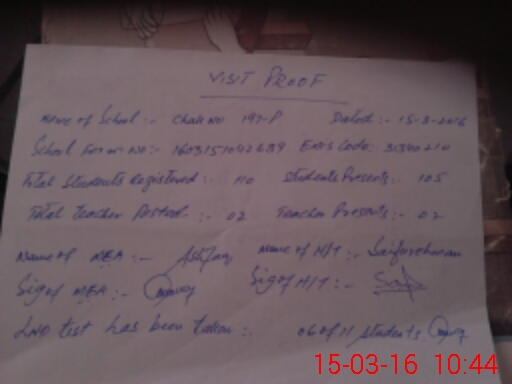 VISIT PROOF
Name of School :- Chak No 197-P Dated :- 15-3-2016
School Form No :- 1603151042689 Emis Code :- 31340210
Total Students Registered :- 110 Students Presents :- 105
Total Teacher Posted :- 02 Teacher Presents :- 02
Name of MEA :- Ashfaq Name of H/T :- Saifurehman
Sig of MEA :- Sig of H/T :-
LND test has been taken :- 06 of 11 students
15-03-16 10:44